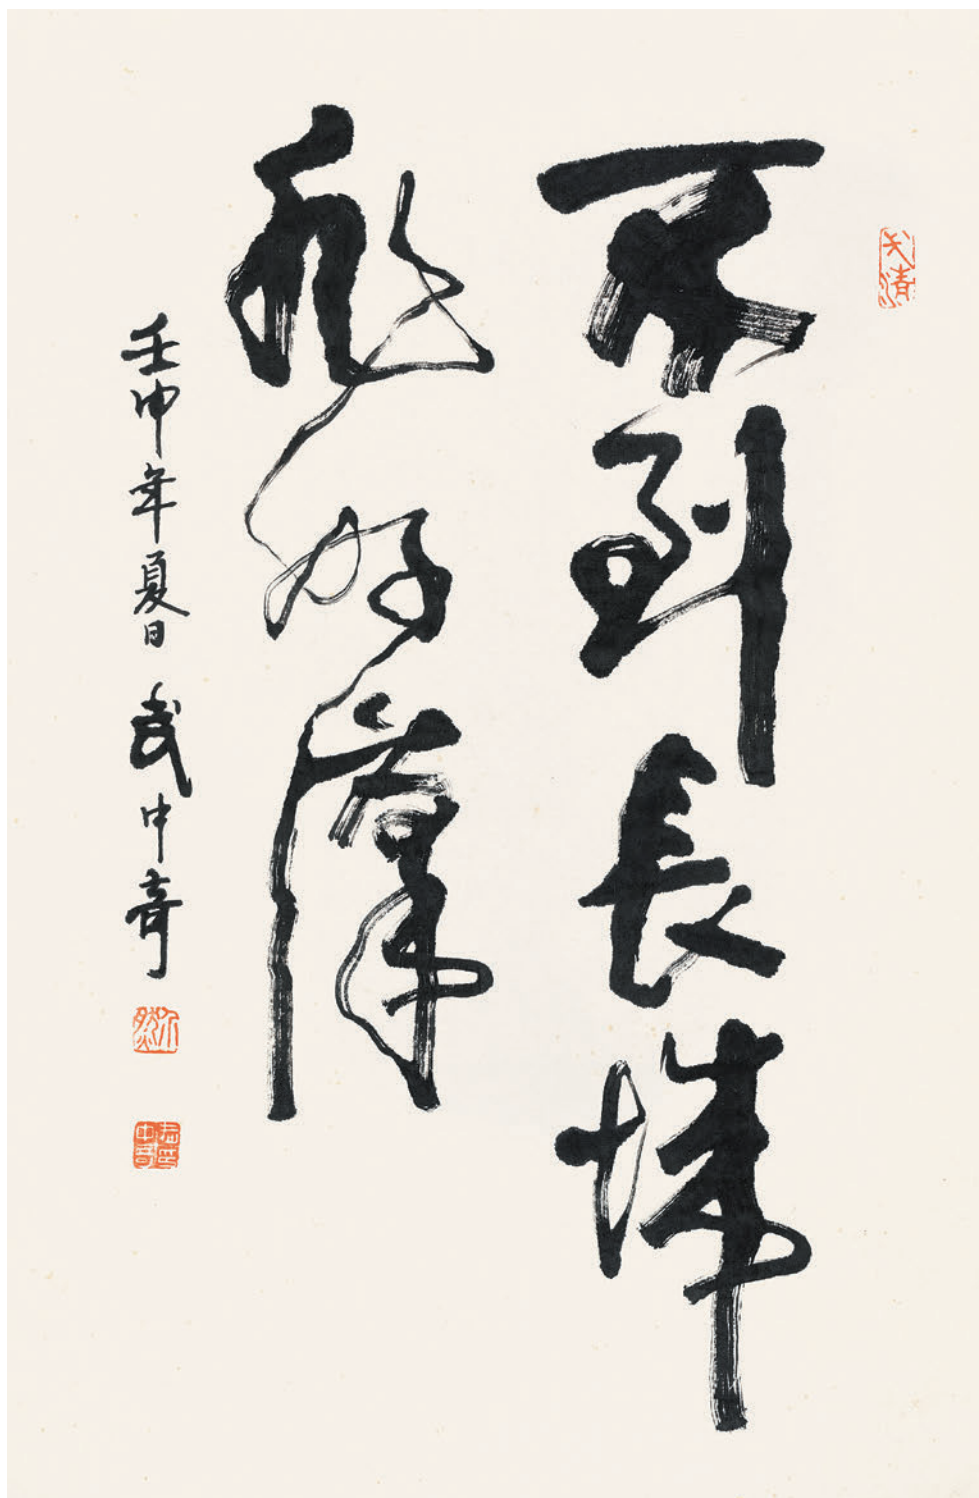 不到長城
非好漢
壬申年夏日 武中奇